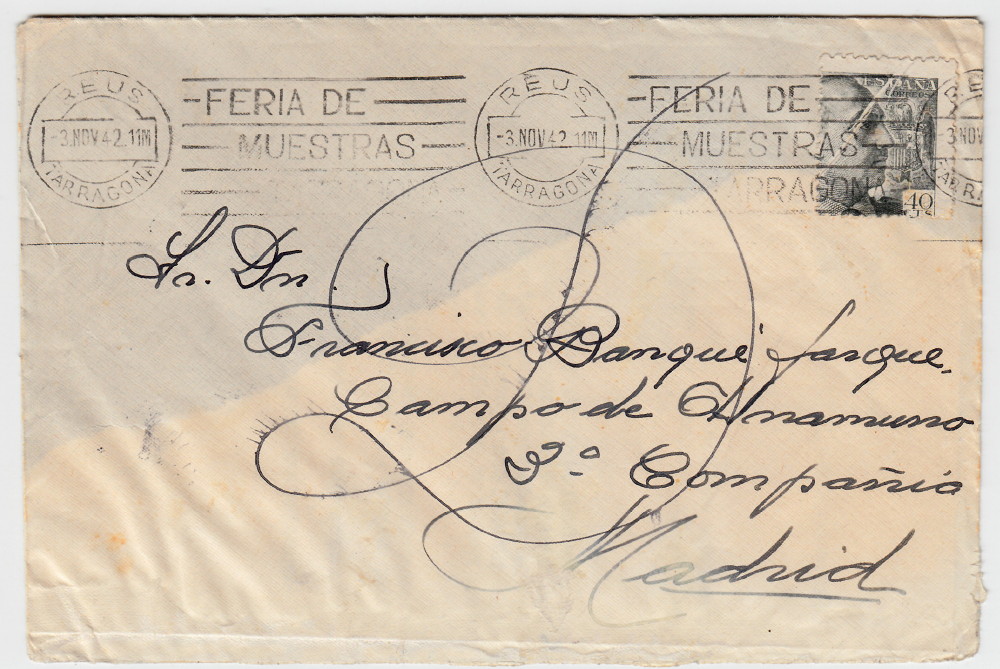 REUS FERIA DE REUS FERIA DE ESPAÑA
CORREOS
-3.NOV42.11M MUESTRAS -3.NOV42.11M MUESTRAS 3 NOV
TARRAGONA TARRAGONA TARRAGON TARRA
40
CTS
Sr. Dn.
Francisco Banqué Jasque.
Campo de Unamuno
3ª Compañia
Madrid